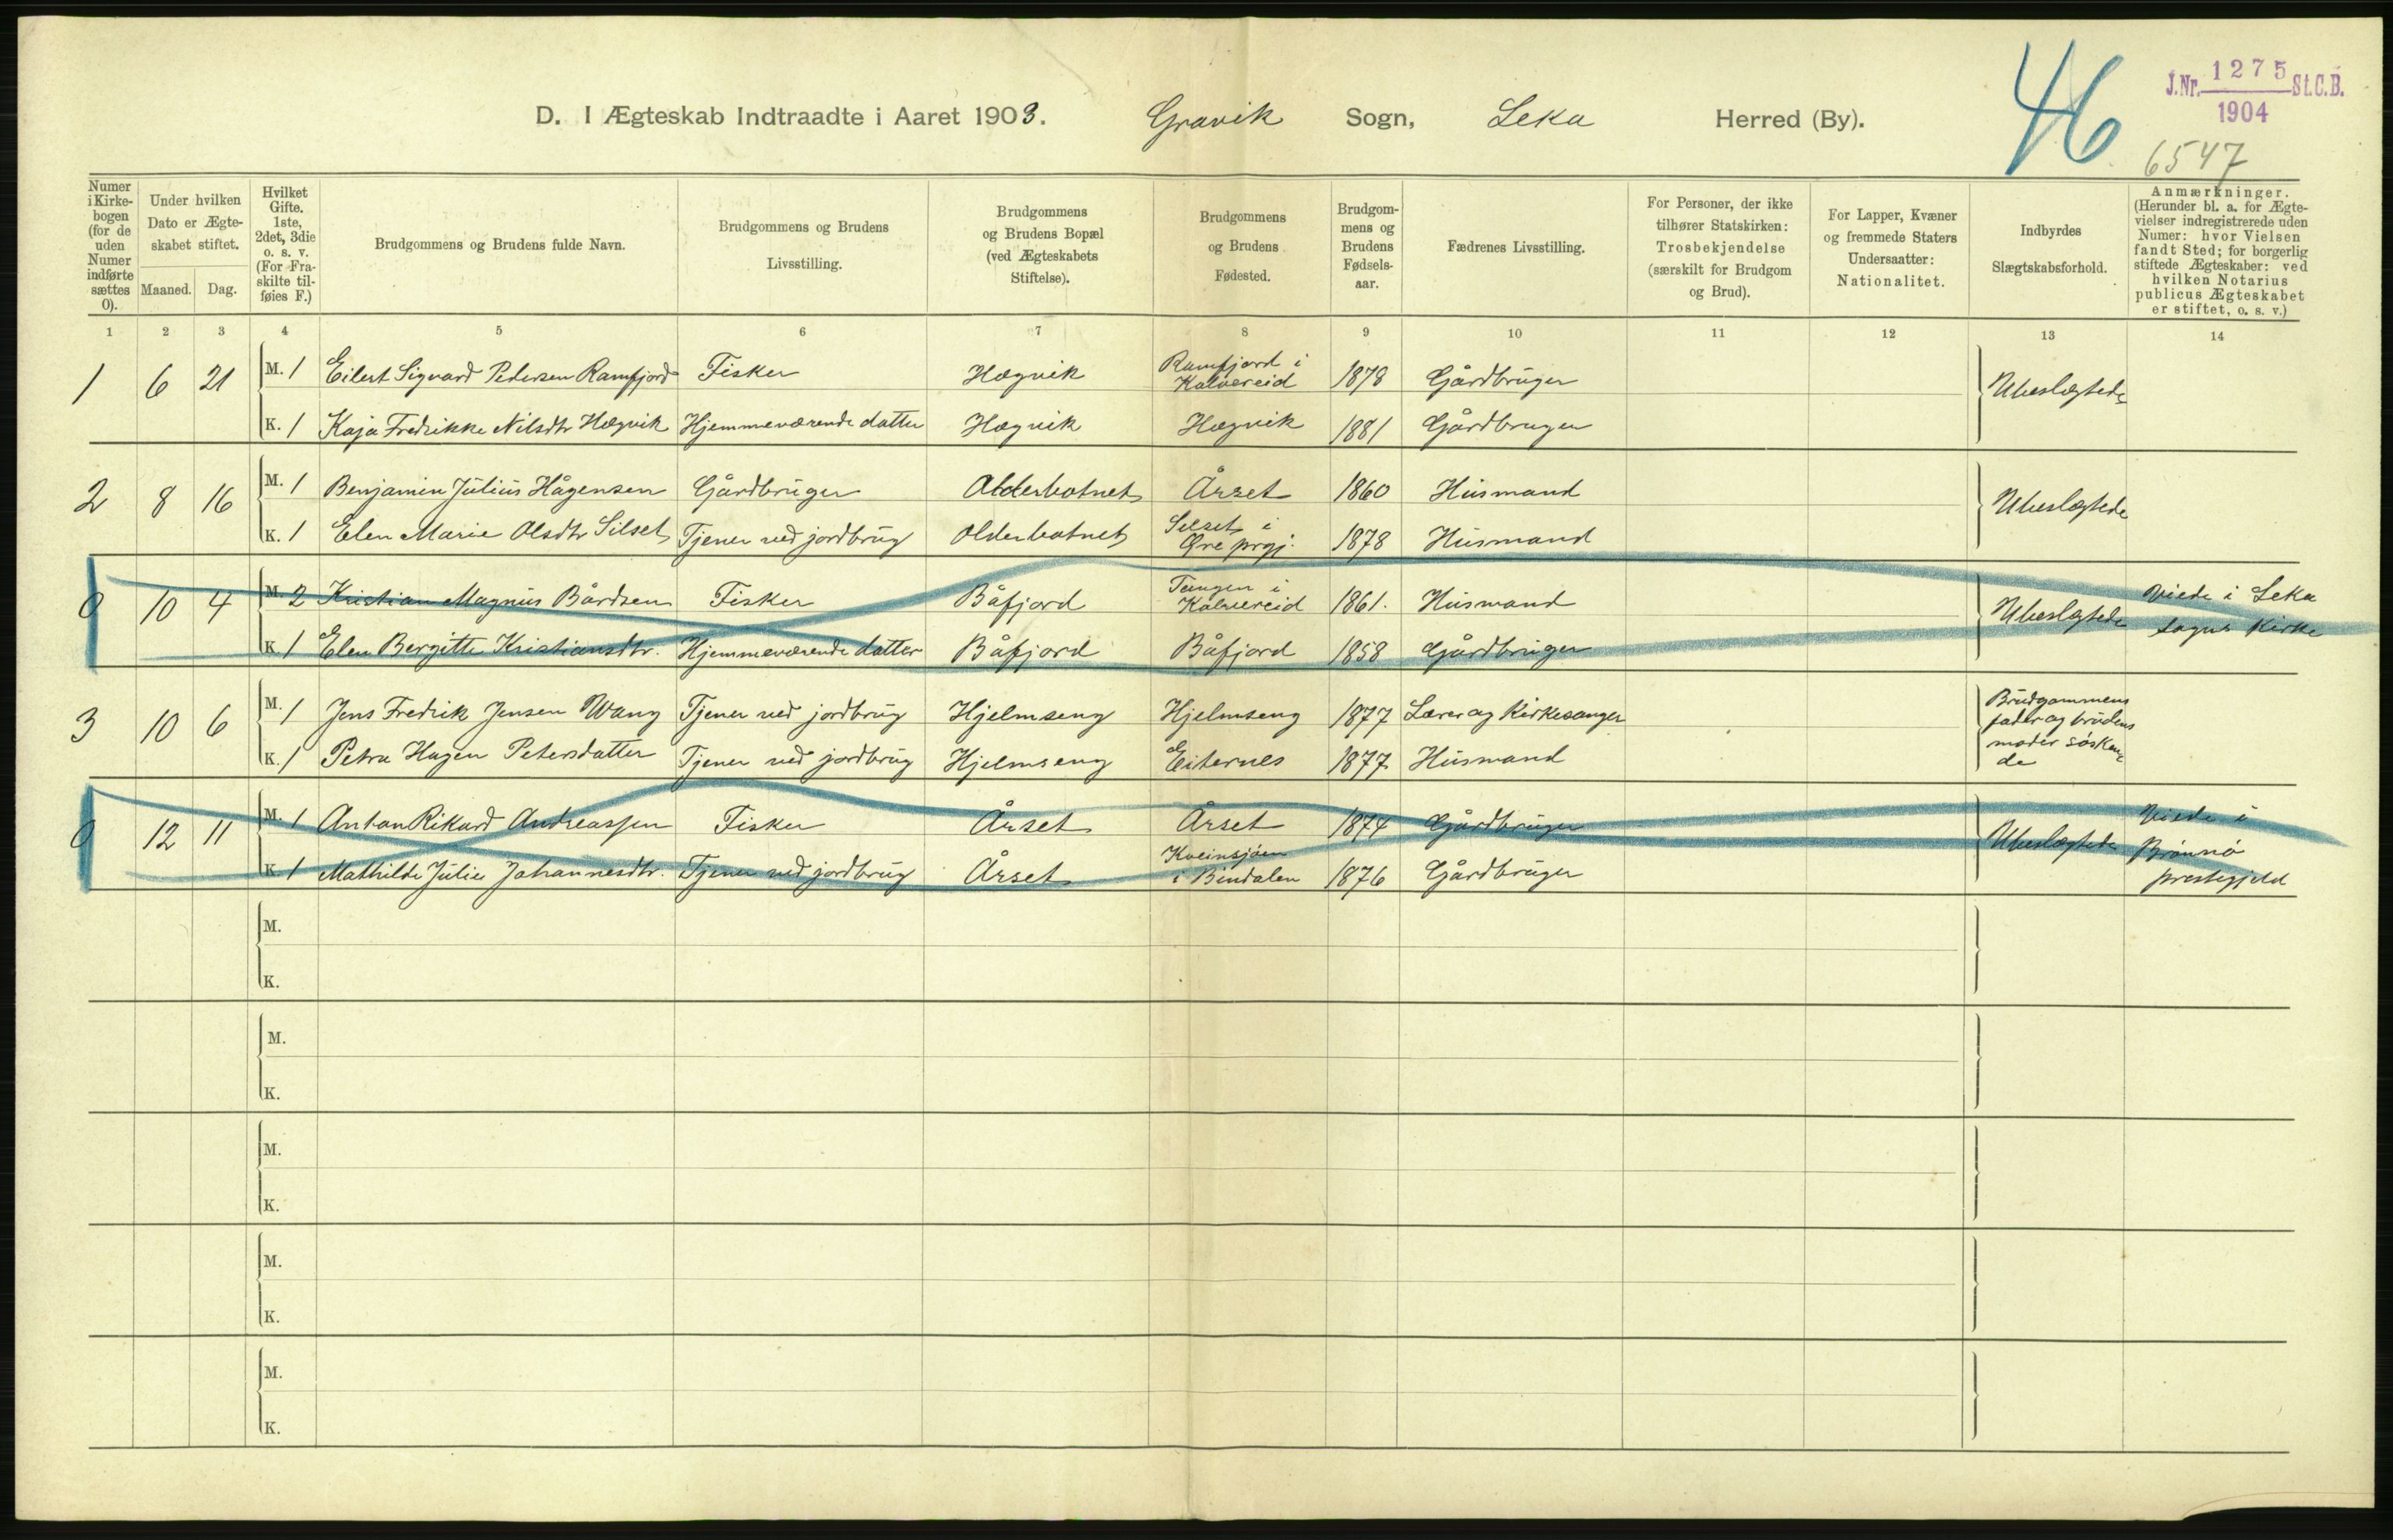 D. I Ægteskab Indtraadte i Aaret 1903. Gravik Sogn, Leka Herred (By).
46
J.Nr. 1275 St.C.B.
1904
6547
Numer i Kirkebogen (for de uden Numer indførte sættes 0).
Under hvilken Dato er Ægteskabet stiftet.
Maaned. Dag.
Hvilket Gifte. 1ste, 2det, 3die o. s. v. (For Fraskilte tilføies F.)
Brudgommens og Brudens fulde Navn.
Brudgommens og Brudens Livsstilling.
Brudgommens og Brudens Bopæl (ved Ægteskabets Stiftelse).
Brudgommens og Brudens Fødested.
Brudgommens og Brudens Fødselsaar.
Fædrenes Livsstilling.
For Personer, der ikke tilhører Statskirken: Trosbekjendelse (særskilt for Brudgom og Brud).
For Lapper, Kvæner og fremmede Staters Undersaatter: Nationalitet.
Indbyrdes Slægtskabsforhold.
Anmærkninger. (Herunder bl. a. for Ægtevielser indregistrerede uden Numer: hvor Vielsen fandt Sted; for borgerlig stiftede Ægteskaber: ved hvilken Notarius publicus Ægteskabet er stiftet, o. s. v.)
1 2 3 4 5 6 7 8 9 10 11 12 13 14
1 6 21 M. 1 Eilert Sigvard Pedersen Ramfjord Fisker Hægvik Ramfjord i Kalvereid 1878 Gårdbruger Ubeslægtede
K. 1 Kaja Fredrikke Nilsdtr Hægvik Hjemmeværende datter Hægvik Hægvik 1881 Gårdbruger
2 8 16 M. 1 Benjamin Julius Hågensen Gårdbruger Olderbotnet Årset 1860 Husmand Ubeslægtede
K. 1 Elen Marie Olsdtr Silset Tjener ved jordbrug Olderbotnet Selset i Øre prgj. 1878 Husmand
0 10 4 M. 2 Kristian Magnus Bårdsen Fisker Båfjord Tungen i Kalvereid 1861. Husmand Ubeslægtede Viede i Leka sogns Kirke
K. 1 Elen Bergitte Kristiansdtr. Hjemmeværende datter Båfjord Båfjord 1858 Gårdbruger
3 10 6 M. 1 Jens Fredrik Jensen Wang Tjener ved jordbrug Hjelmseng Hjelmseng 1877 Lærer og Kirkesanger Brudgommens fader og brudens moder søskende
K. 1 Petra Hagen Petersdatter Tjener ved jordbrug Hjelmseng Eiternes 1877 Husmand
0 12 11 M. 1 Anton Rikard Andreassen Fisker Årset Årset 1874 Gårdbruger Ubeslægtede Viede i Brønnø prestegjeld
K. 1 Mathilde Julie Johannesdtr. Tjener ved jordbrug Årset Kveinsjøen i Bindalen 1876 Gårdbruger
M.
K.
M.
K.
M.
K.
M.
K.
M.
K.